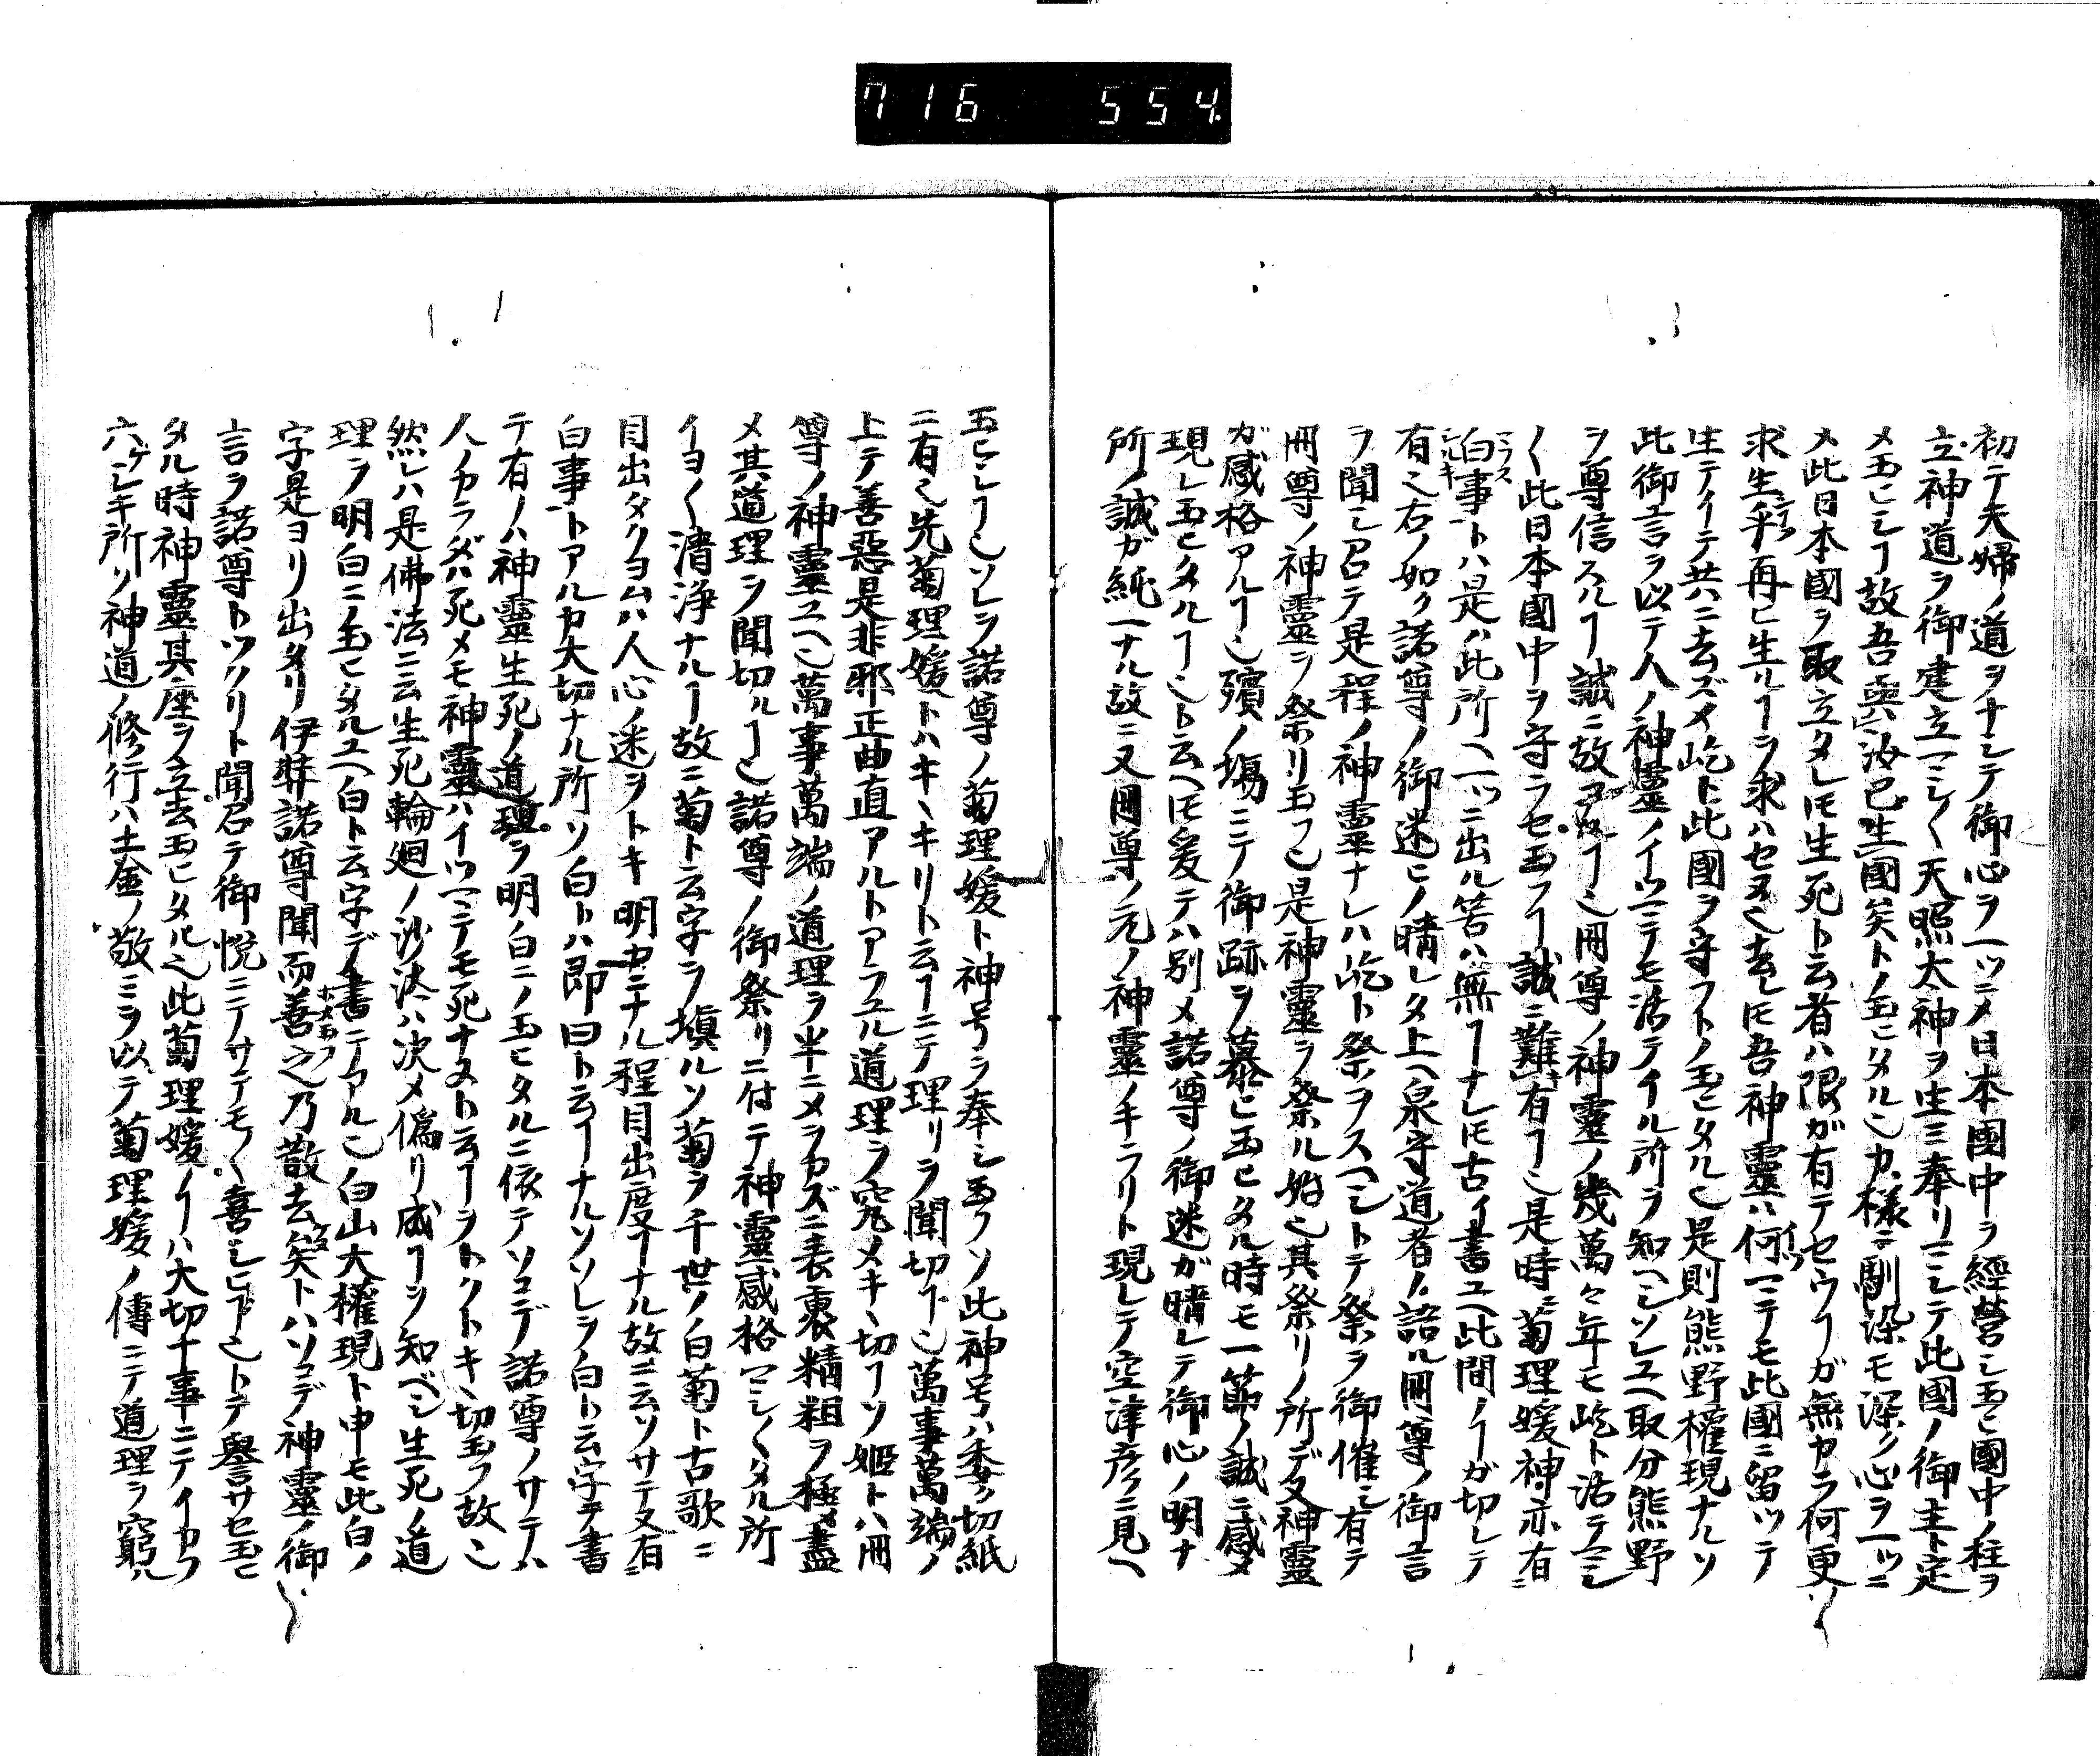 716 554
初テ夫婦ノ道ヲナシテ御心ヲ一ツニメ日本國中ヲ經営シ玉ヒ國中ノ柱ヲ
立神道ヲ御建立マシ〱天照太神ヲ生ミ奉リマシテ此國ノ御主ト定
メ玉ヒシヿ故吾與汝已生國矣トノ玉ヒタル〆カ樣ニ馴染モ深ク心ヲ一ツニ
メ此日本國ヲ取立タレ𪜈生死ト云者ハ限ガ有テセウヿガ無カラ何更〱
求生乎再ヒ生ルヿヲ求ハセヌ〆去レ𪜈吾神靈ハ何マテモ此國ニ留ツテ
生テイテ共ニ去ズメ屹ト此國ヲ守フトノ玉ヒタル〆是則熊野權現ナルソ
此御言ヲ以テ人ノ神靈ノイツマテモ活テイル所ヲ知ヘシソレユヘ取分熊野
ヲ尊信スルヿ誠ニ故アルヿ〆冊尊ノ神靈ノ幾萬々年モ屹ト活テマシ
〱此日本國中ヲ守ラセ玉フヿ誠ニ難有ヿ〆是時菊理媛神亦有
白事トハ是ハ此所ヘ一ツニ出ル筈ハ無ヿナレ𪜈古イ書ユヘ此間ノヿガ切レテ
有〆右ノ如ク諾尊ノ御迷ヒノ晴レタ上ヘ泉守道者ノ語ル冊尊ノ御言
ヲ聞シ召テ是程ノ神靈ナレハ屹ト祭ヲスヘシトテ祭ヲ御催シ有テ
冊尊ノ神靈ヲ祭リ玉フ〆是神靈ヲ祭ル始〆其祭リノ所デ又神靈
ガ感格アルヿ〆殯ノ場ニテ御跡ヲ慕ヒ玉ヒタル時モ一節ノ誠ニ感メ
現レ玉ヒタルヿ〆ト云ヘ𪜈爰テハ別メ諾尊ノ御迷ガ晴レテ御心ノ明ナ
所ノ誠ガ純一ナル故ニ又冊尊ノ元ノ神靈ノキラリト現レテ空津彦ニ見ヘ
玉ヒシヿ〆ソレヲ諾尊ノ菊理媛ト神号ヲ奉シ玉フソ此神号ハ委ク切紙
ニ有〆先菊理媛トハキヽキリト云ヿニテ理リヲ聞切ヿ〆萬事萬端ノ
上テ善惡是非邪正曲直アルトアラユル道理ヲ究メキヽ切ヿソ姫トハ冊
尊ノ神靈ユヘ〆萬事萬端ノ道理ヲ半ニメヲカズニ表裏精粗ヲ極メ盡
メ其道理ヲ聞切ルヿ〆諾尊ノ御祭リニ付テ神靈感格マシ〱タル所
イヨ〱清浄ナルヿ故ニ菊ト云字ヲ塡ルソ菊ヲ千世ノ白菊ト古歌ニ
目出タクヨムハ人心ノ迷ヲトキ明カニナル程目出度ヿナル故ニ云ソサテ又有
白事トアルカ大切ナル所ソ白トハ即曰ト云ヿナルソソレヲ白ト云字ヲ書
テ有ノハ神靈生死ノ道理ヲ明白ニノ玉ヒタルニ依テソコデ諾尊ノサテハ
人ノカラダハ死メモ神靈ハイツマテモ死ナヌト云ヿヲトクトキヽ切玉フ故〆
然レハ是佛法ニ云生死輪廻ノ沙汰ハ决メ偽リ成ヿヲ知ベシ生死ノ道
理ヲ明白ニノ玉ヒタルユヘ白ト云字デ書ニアル〆白山大權現ト申モ此白ノ
字是ヨリ出タリ伊弉諾尊聞而善之乃散去矣トハソコデ神靈ノ御
言ヲ諾尊トツクリト聞召テ御悦ニテサテモ〱善シヒヿ〆トテ譽サセ玉ヒ
タル時神靈其座ヲ立去玉ヒタル〆此菊理媛ノヿハ大切ナ事ニテイカフ
六ケシキ所ソ神道ノ修行ハ土金ノ敬ミヲ以テ菊理媛ノ傳ニテ道理ヲ窮ル